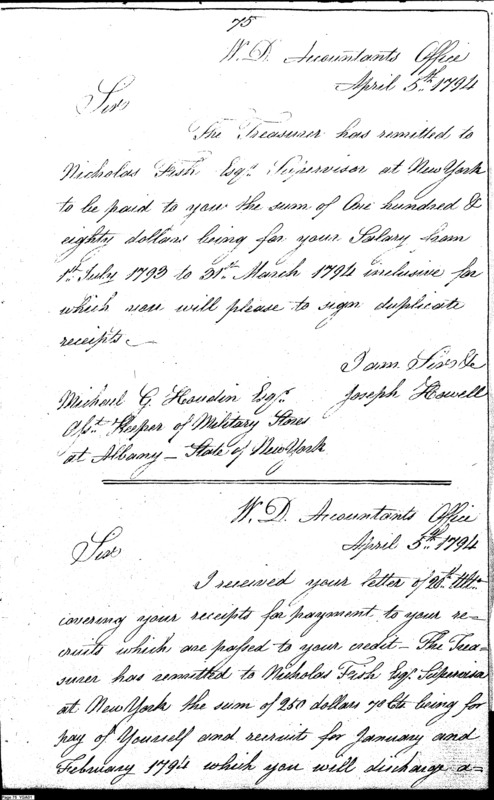 75
W. D. Accountants Office
April 5th 1794
Sir
The Treasurer has remitted to
Nicholas Fish Esqr. Supervisor at New York
to be paid to you the sum of One hundred &
eighty dollars being for your Salary from
1st July 1793 to 31st March 1794 inclusive for
which you will please to sign duplicate
receipts.
I am Sir &c
Joseph Howell
Michael G Houdin Esqr.
Asst. Keeper of Military Stores
at Albany — State of New York
W. D. Accountants Office
April 5th 1794
Sir
I received your letter of 20th Ulto.
covering your receipts for payment to your re=
cruits which are passed to your credit — The Trea=
surer has remitted to Nicholas Fish Esqr. Supervisor
at New York the sum of 250 dollars 70 Cts being for
pay of Yourself and recruit for January and
February 1794 which you will discharge a=